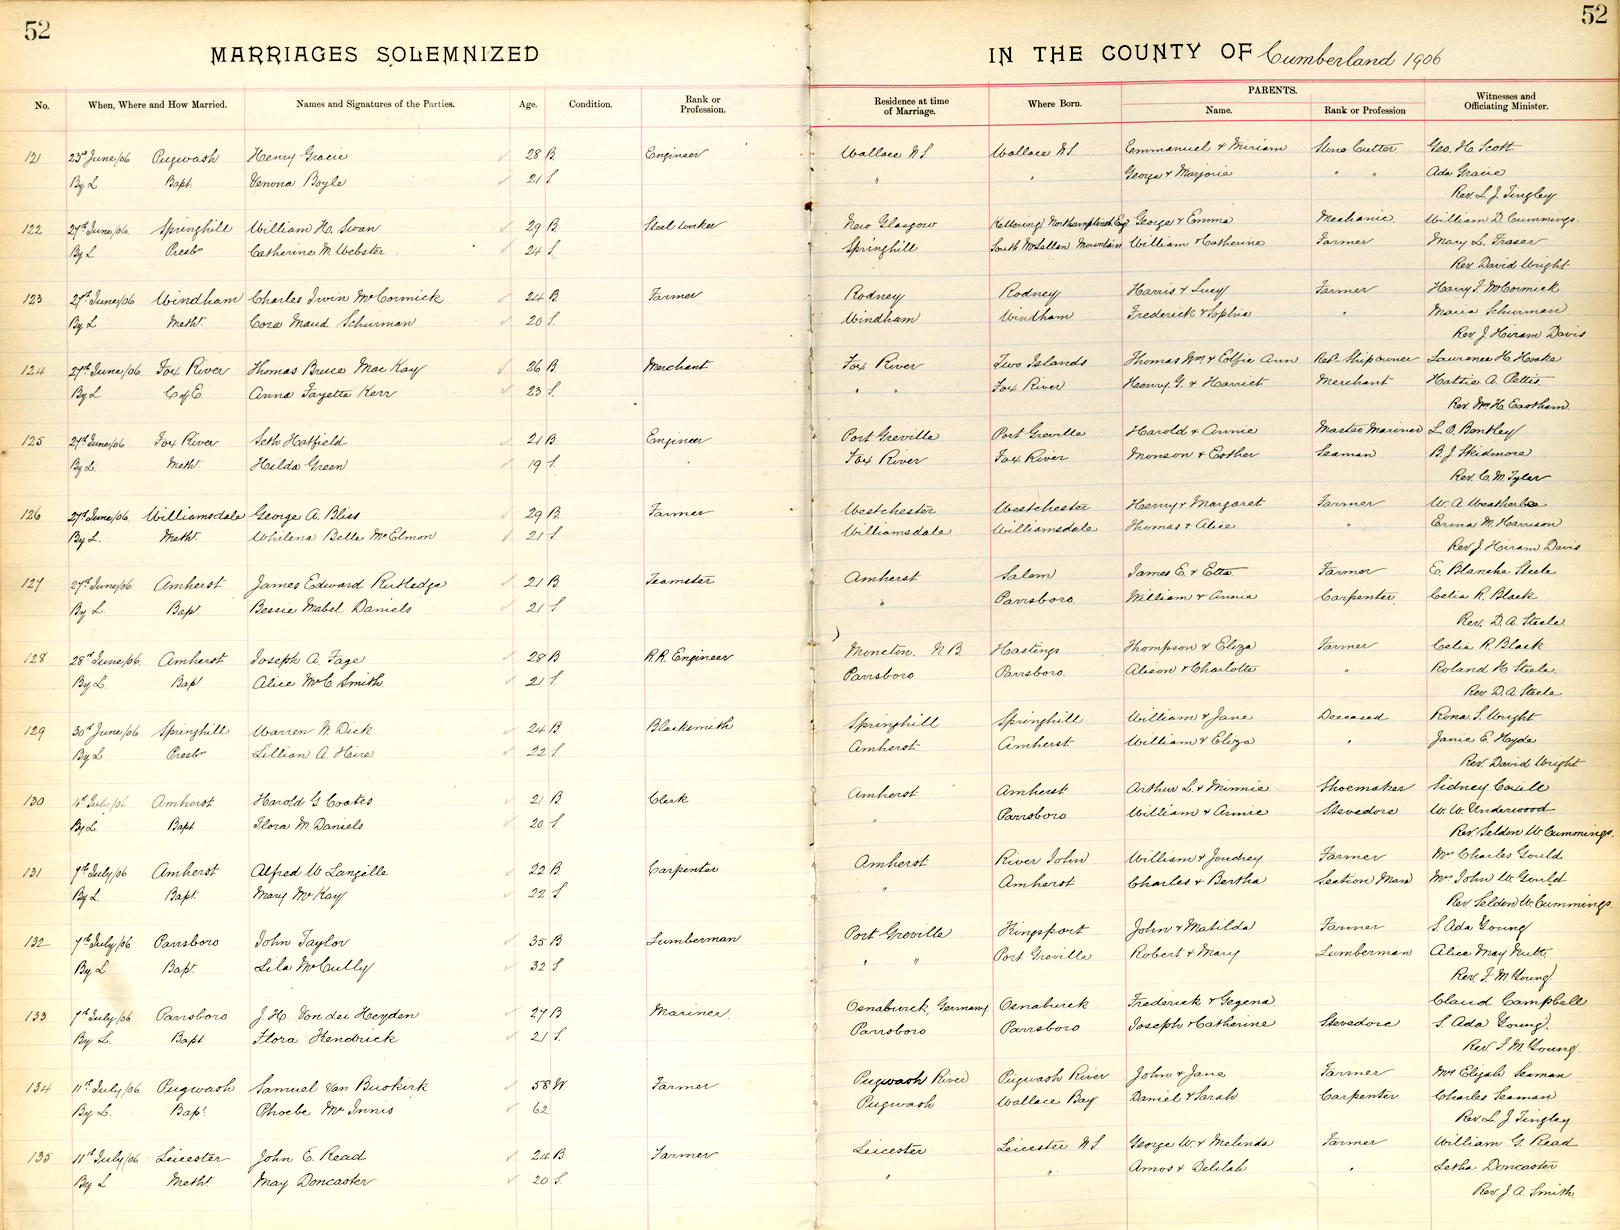 52
52
MARRIAGES SOLEMNIZED
IN THE COUNTY OF Cumberland 1906
No. When, Where and How Married. Names and Signatures of the Parties. Age. Condition. Rank or Profession. Residence at time of Marriage. Where Born. PARENTS. Name. Rank or Profession Witnesses and Officiating Minister.
121 23rd June/06 Pugwash Henry Gracie 28 B Engineer Wallace N S Wallace N S Emmanuel & Miriam Stone Cutter Geo. H. Scott
By L Bapt. Venona Boyle 21 S. " " George & Marjorie " " Ada Gracie
Rev. L. J. Tingley
122 27th June/06 Springhill William H. Swan 29 B. Steel worker New Glasgow Kettering Northamptonsh Eng George & Emma Mechanic William D. Cummings
By L Presbn Catherine M. Webster 24 S. Springhill South McLellan Mountain William & Catherine Farmer Mary L. Fraser
Rev. David Wright
123 27th June/06 Windham Charles Irvin McCormick 24 B. Farmer Rodney Rodney Harris & Lucy Farmer Harry F. McCormick
By L Metht. Cora Maud Schurman 20 S. Windham Windham Frederick & Sophia " Maria Schurman
Rev. J. Hiram Davis
124 27th June/06 Fox River Thomas Bruce MacKay 26 B. Merchant Fox River Two Islands Thomas Wm. & Effie Ann Retd. Shipowner Laurence H. Hoake
By L C of E. Anna Fayette Kerr 23 S. " " Fox River Henry G. & Harriet Merchant Hattie A. Pettis
Rev. Wm. H. Eastham
125 27th June/06 Fox River Seth Hatfield 21 B. Engineer Port Greville Port Greville Harold & Annie Master Mariner L. O. Bentley
By L. Metht. Hilda Green 19 S. Fox River Fox River Monson & Esther Seaman B. J. Skidmore
Rev. C. M. Tyler
126 27th June/06 Williamsdale George A. Bliss 29 B. Farmer Westchester Westchester Henry & Margaret Farmer W. A. Weatherbe
By L. Metht. Whilena Belle McElmon 21 S Williamsdale Williamsdale Thomas & Alice " Erma M. Harrison
Rev. J. Hiram Davis
127 27th June/06 Amherst James Edward Rutledge 21 B Teamster Amherst Salem James E. & Etta Farmer E. Blanche Steele
By L. Bapt Bessie Mabel Daniels 21 S " Parrsboro William & Annie Carpenter Celia R. Black
Rev. D. A. Steele
128 28th June/06 Amherst Joseph A. Fage 28 B R.R. Engineer Moncton. N B. Hastings Thompson & Eliza Farmer Celia R Black
By L. Bapt Alice McC Smith 21 S. Parrsboro Parrsboro Alison & Charlotte " Roland H. Steele.
Rev. D. A. Steele
129 30th June/06 Springhill Warren N. Dick 24 B Blacksmith Springhill Springhill William & Jane Deceased Rona. S. Wright
By L Presbn Lillian A. Hire 22 S. Amherst Amherst William & Eliza " Janie E. Hyde
Rev. David Wright
130 4th July/06 Amherst Harold G Coates 21 B Clerk Amherst Amherst Arthur L. & Minnie Shoemaker Sidney Coxell
By L Bapt Flora M. Daniels 20 S. " Parrsboro William & Annie Stevedore W. W. Underwood
Rev. Seldon W Cummings.
131 7th July/06 Amherst Alfred W Langille 22 B. Carpenter Amherst River John William & Joudrey Farmer Mrs Charles Gould
By L Bapt. Mary McKay 22 S " Amherst Charles & Bertha Section Man Mrs John W. Gould
Rev Seldon W. Cummings.
132 7th July/06 Parrsboro John Taylor 35 B Lumberman Port Greville Kingsport John & Matilda Farmer S. Ada Young
By L Bapt. Lila McCully 32 S " " Port Greville Robert & Mary Lumberman Alice May Nutt.
Rev. F. M. Young
133 7th July/06 Parrsboro J. H. Von der Heyden 27 B Mariner. Osnabruck, Germany Osnabruck Frederick & Gegena Claud Campbell
By L. Bapt Flora Kendrick 21 S. Parrsboro Parrsboro Joseph & Catherine Stevedore S. Ada Young.
Rev. F. M. Young.
134 11th July/06 Pugwash Samuel Van Buskirk 58 W Farmer Pugwash River Pugwash River John & Jane Farmer Mrs Elijah Seaman
By L. Bapt. Phoebe McInnis 62 Pugwash Wallace Bay Daniel & Sarah Carpenter Charles Seaman
Rev. L. J. Tingley
135 11th July/06 Leicester John E. Read 24 B Farmer Leicester Leicester N S George W. & Melinda Farmer William G. Read
By L Metht May Doncaster 20 S. " " Amos & Delilah " Letha Doncaster
Rev. J. A. Smith